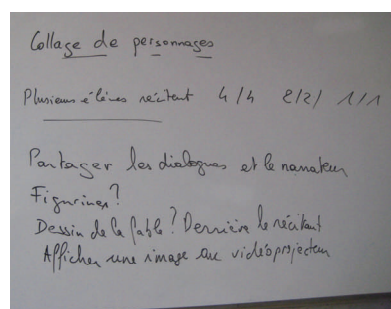 Collage de personnages
Plusieurs élèves récitent 4/4 2/2/ 1/1
Partager les dialogues et le narrateur
Figurines?
Dessin de la fable? Derrière le récitant
Afficher une image au vidéoprojecteur